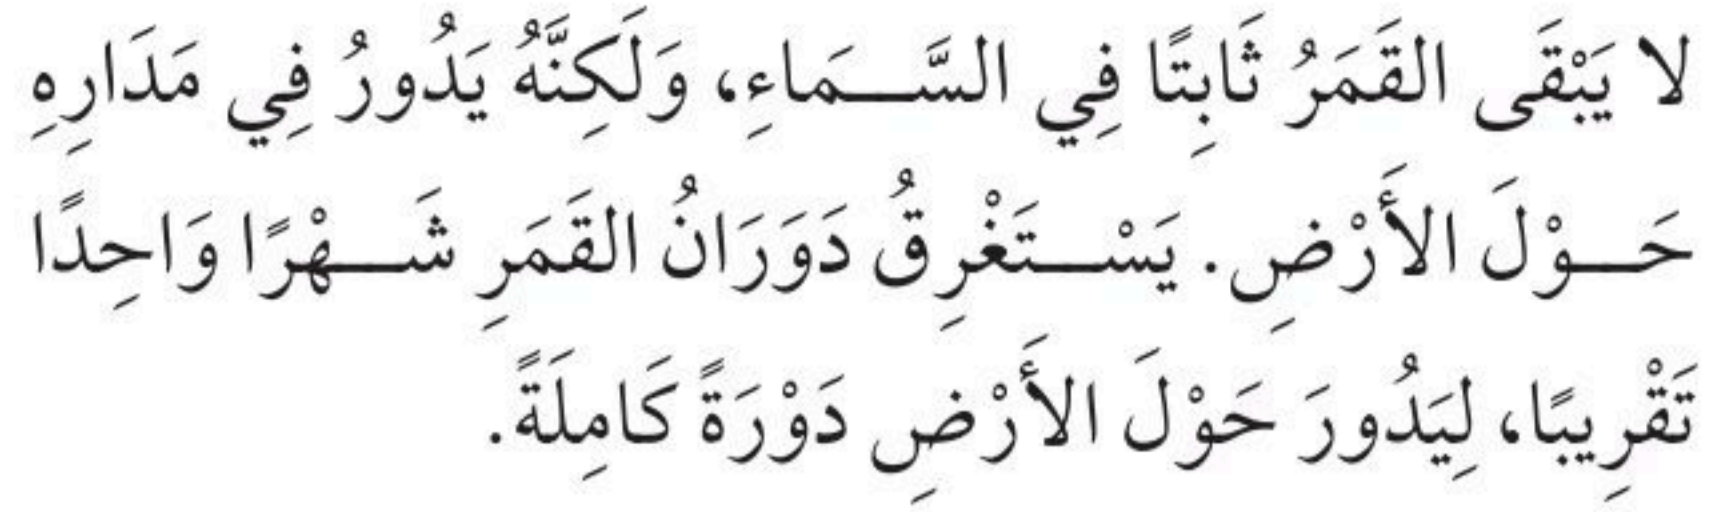 لا يَبْقَى القَمَرُ ثَابِتًا فِي السَّـمَاءِ، وَلَكِنَّهُ يَدُورُ فِي مَدَارِهِ
حَـوْلَ الأَرْضِ. يَسْـتَغْرِقُ دَوَرَانُ القَمَرِ شَـهْرًا وَاحِدًا
تَقْرِيبًا، لِيَدُورَ حَوْلَ الأَرْضِ دَوْرَةً كَامِلَةً.